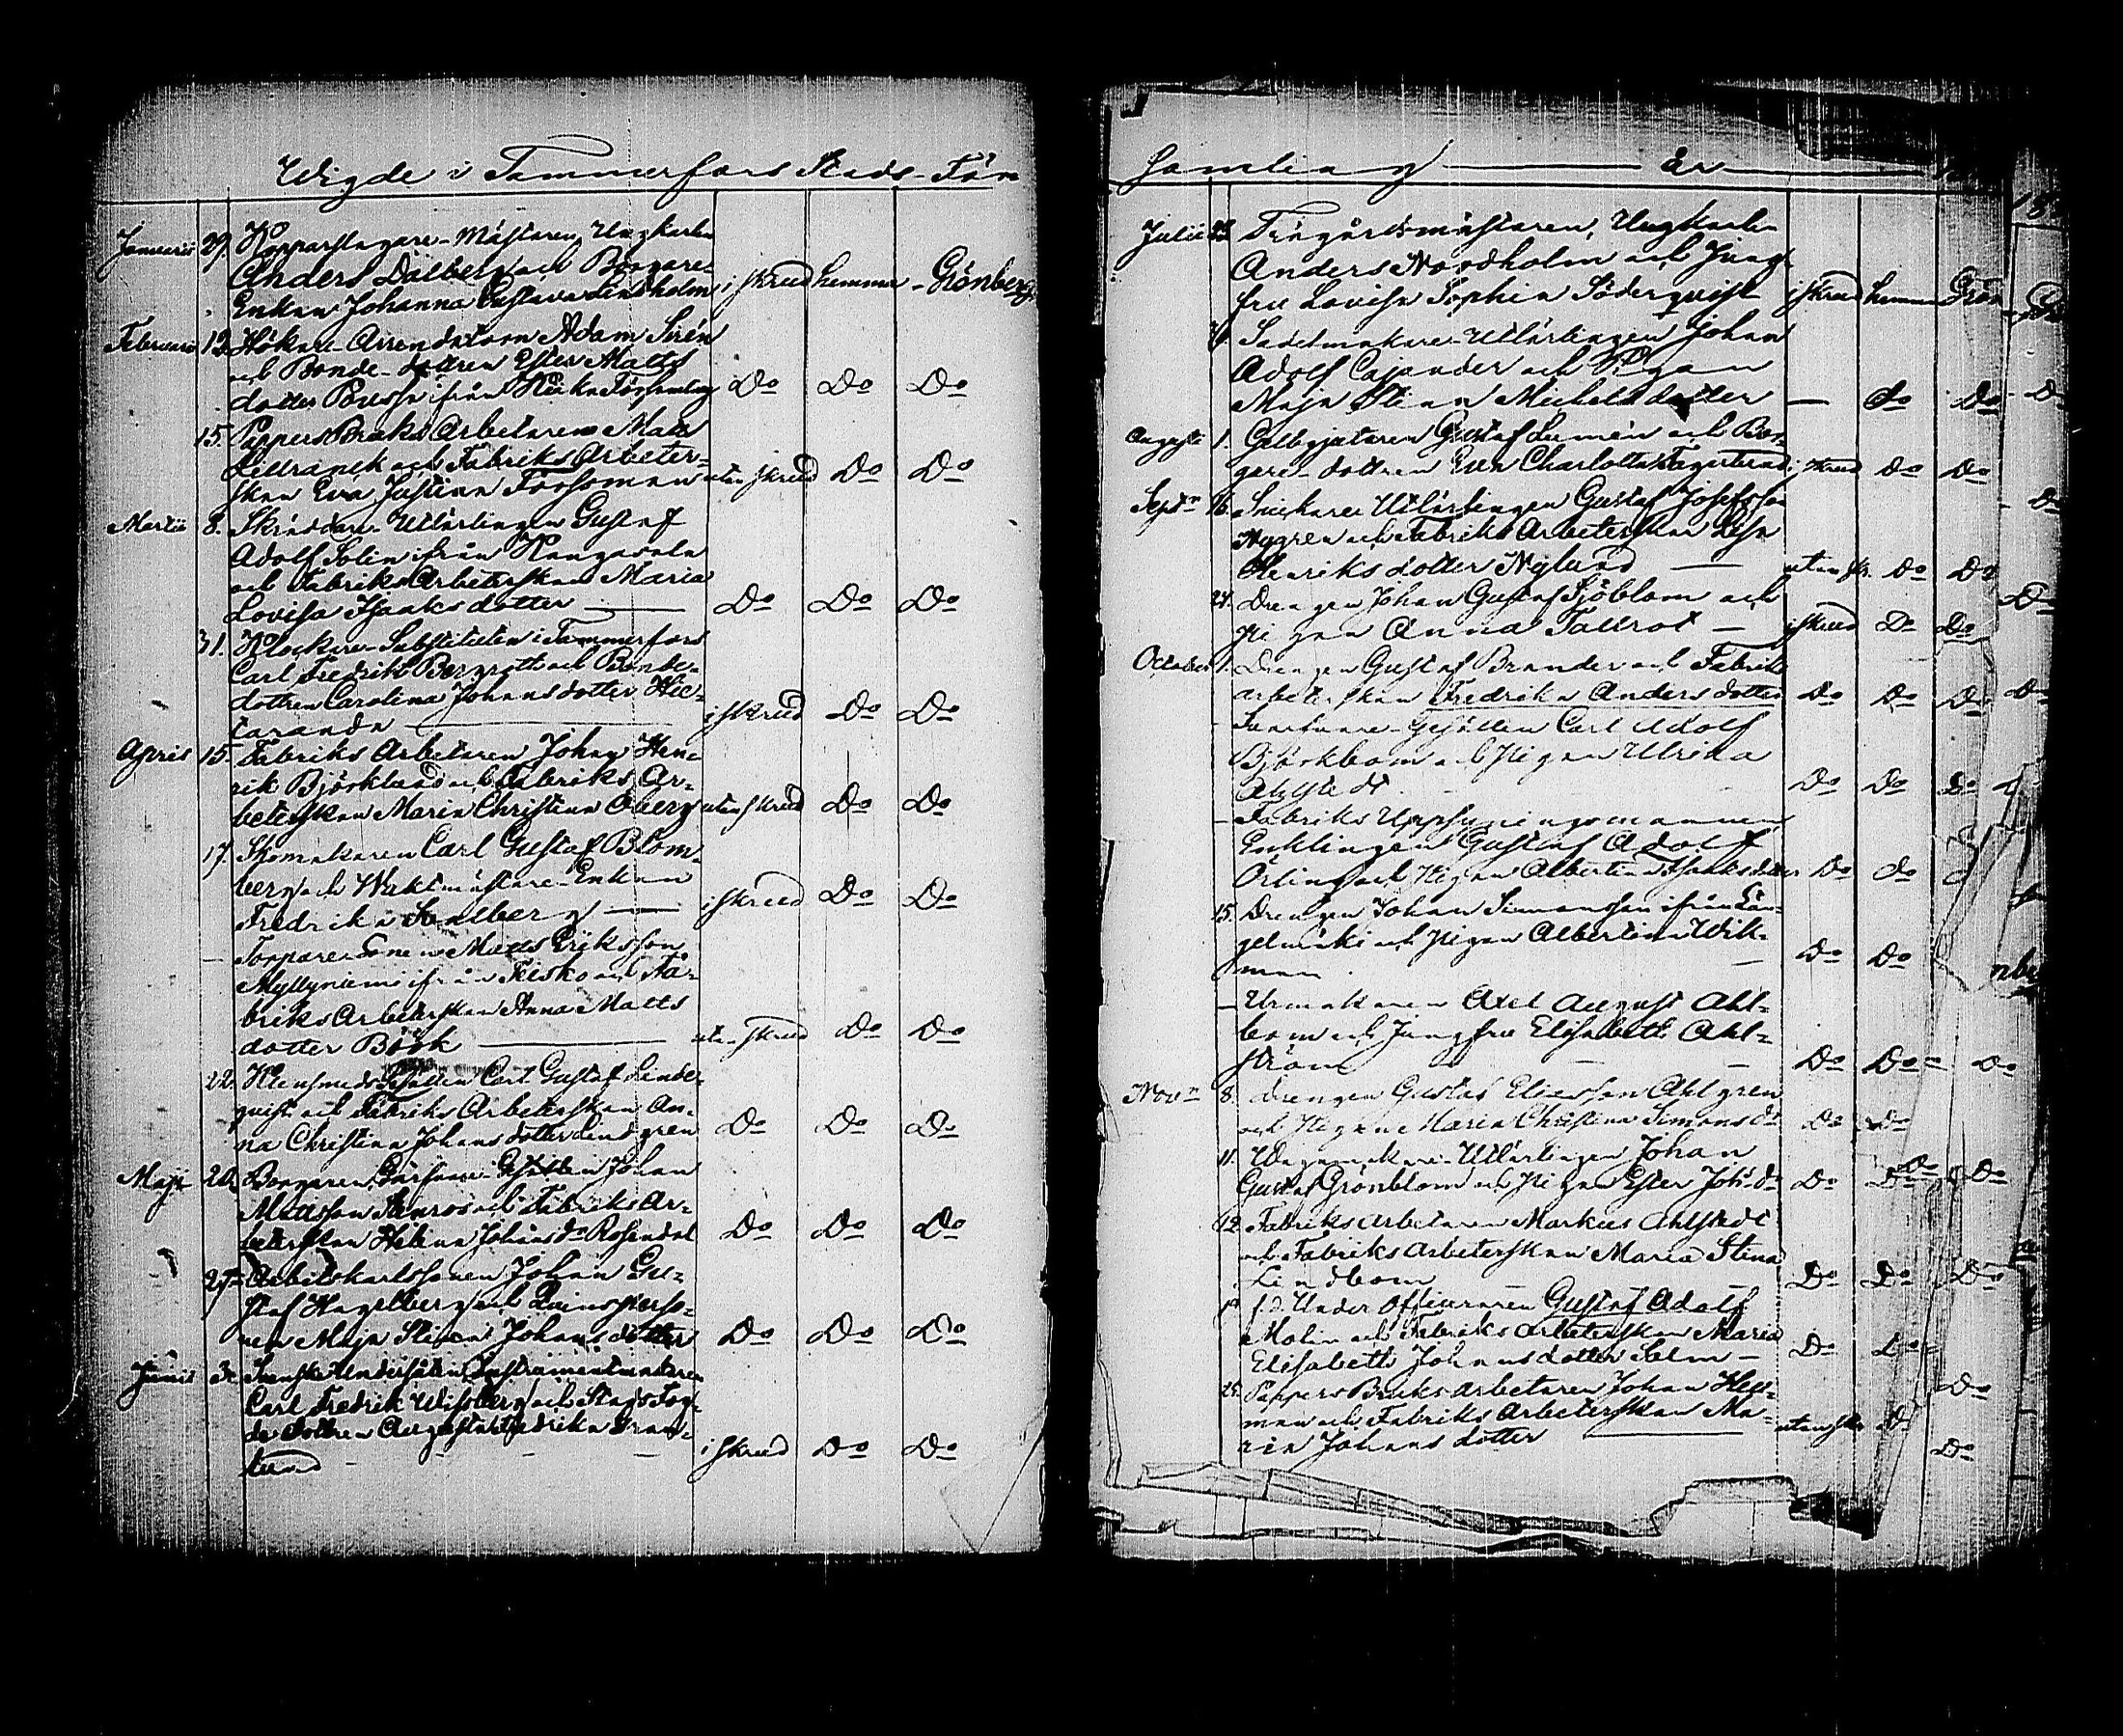 Wigde i Tammerfors Stads-För
Januarii 29. Kopparslagare-Mästaren Ungkarlen
Anders Dalberg och Borgare-
Enkan Johanna Gustava Lindholm i skrud hemma Grönberg
Februarii 12. Hökare-Arrendatorn Adam Sirén
och Bonde-dottren Ester Matts
dotter ifrån Församling Do Do Do
15. PappersBruks Arbetaren Mats
och Fabriks Arbeter-
skan Eva Justina Forssman utan skrud Do Do
Martii 8. Skräddare-Utlärlingen Gustaf
Adolf Solin ifrån Kangasala
och Fabriks Arbeterskan Maria
Lovisa Isaaksdotter — Do Do Do
31. Klockare-Substituten i Tammerfors
Carl Fredrik Bergroth och Bonde-
dottren Carolina Johansdotter Hie-
taranda — i skrud Do Do
April 15. Fabriks Arbetaren Johan Hen-
rik Björklund och Fabriks Ar-
beterskan Maria Christina Åberg utan skrud Do Do
17. Skomakaren Carl Gustaf Blom-
berg och Waktmästare-Enkan
Fredrika — i skrud Do Do
— Torpare Sonen Matts Eriksson
Myllyniemi ifrån och Fa-
briks Arbeterskan Anna Matts
dotter Böök — utan skrud Do Do
22. Klensmeds Gesällen Carl Gustaf Linde-
qvist och Fabriks Arbeterskan An-
na Christina Johansdotter Lindgren Do Do Do
Maji 20. Borgaren, Garfvare-Gesällen Johan
Mattsson Stenros och Fabriks Ar-
beterskan Helena Johans Dr Rosendal Do Do Do
27. Arbetskarlssonen Johan Gu-
staf Hagelberg och
Maja Stina Johansdotter Do Do Do
Junii 3. Svenske Undersåten, Instrumentmakaren
Carl Fredrik Wissberg och Stads Fog-
de Dottren Augusta Fredrika Gran-
lund — i skrud Do Do
samling — År —
Julii 22. Trägårdsmästaren, Ungkarlen
Anders Nordholm och Jung-
fru Lovisa Sophia Söderqvist i skrud hemma Grön
Sadelmakare-Utlärlingen Johan
Adolf Cajander och Pigan
Maja Stina Michelsdotter — do Do
Augusti 1. Gelbgjutaren Gustaf Lemén och Bor-
gare-dottren Eva Charlotta Fagerlund i skrud Do Do
Septr 16. Snickare Utlärlingen Gustaf Josefsson
Nygren och Fabriks Arbeterskan Lisa
Henriksdotter Nylund — utan skr. Do Do
24. Drengen Johan Gustaf Sjöblom och
Pigan Anna Tallrot — i skrud Do Do
October 1. Drengen Gustaf Brander och Fabriks
arbeterskan Fredrika Andersdotter Do Do Do
— Garfvare-Gesällen Carl Adolf
Björkbom och Pigan Ulrika
Ahlstedt Do Do Do
— Fabriks Uppsyningsmannen
Enklingen Gustaf Adolf
Örling och Pigan Albertina Isaksdotter Do do
15. Drengen Johan Simonsson ifrån Län-
gelmäki och Pigan Albertina Wik-
man. — Do Do
— Urmakaren Axel August Ahl-
bom och Jungfru Elisabeth Ahl-
ström — Do Do Do
Novr 8. Drengen Gustaf Eliasson Ahlgren
och Pigan Maria Christina Simons dr Do Do
11. Wagnmakare-Utlärlingen Johan
Gustaf Grönblom och Pigan Ester Joh: dr Do Do Do Do
12. Fabriks Arbetaren Markus Ahlstedt
och Fabriks Arbeterskan Maria Stina
Lindbom — Do Do Do
f.d. Under Officeraren Gustaf Adolf
Molin och Fabriks Arbeterskan Maria
Elisabeth Johansdotter Salm — Do Do
25. Pappers Bruks Arbetaren Johan Hell-
man och Fabriks Arbeterskan Ma-
ria Johansdotter — utan skr Do
Do
Do